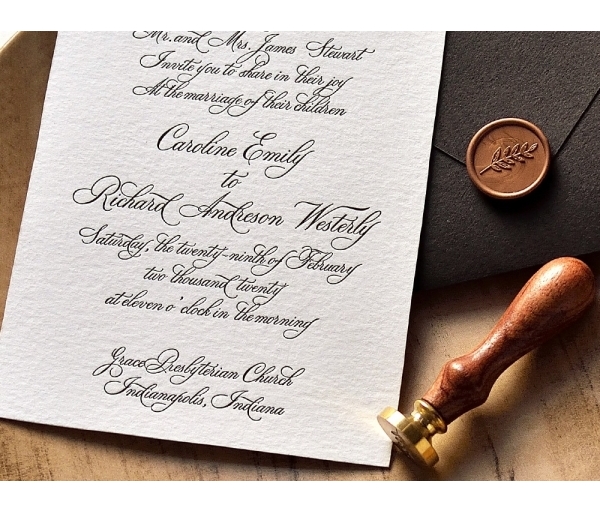 Mr. and Mrs. James Stewart
Invite you to share in their joy
At the marriage of their children
Caroline Emily
to
Richard Andreson Westerly
Saturday, the twenty-ninth of February
two thousand twenty
at eleven o'clock in the morning
Grace Presbyterian Church
Indianapolis, Indiana